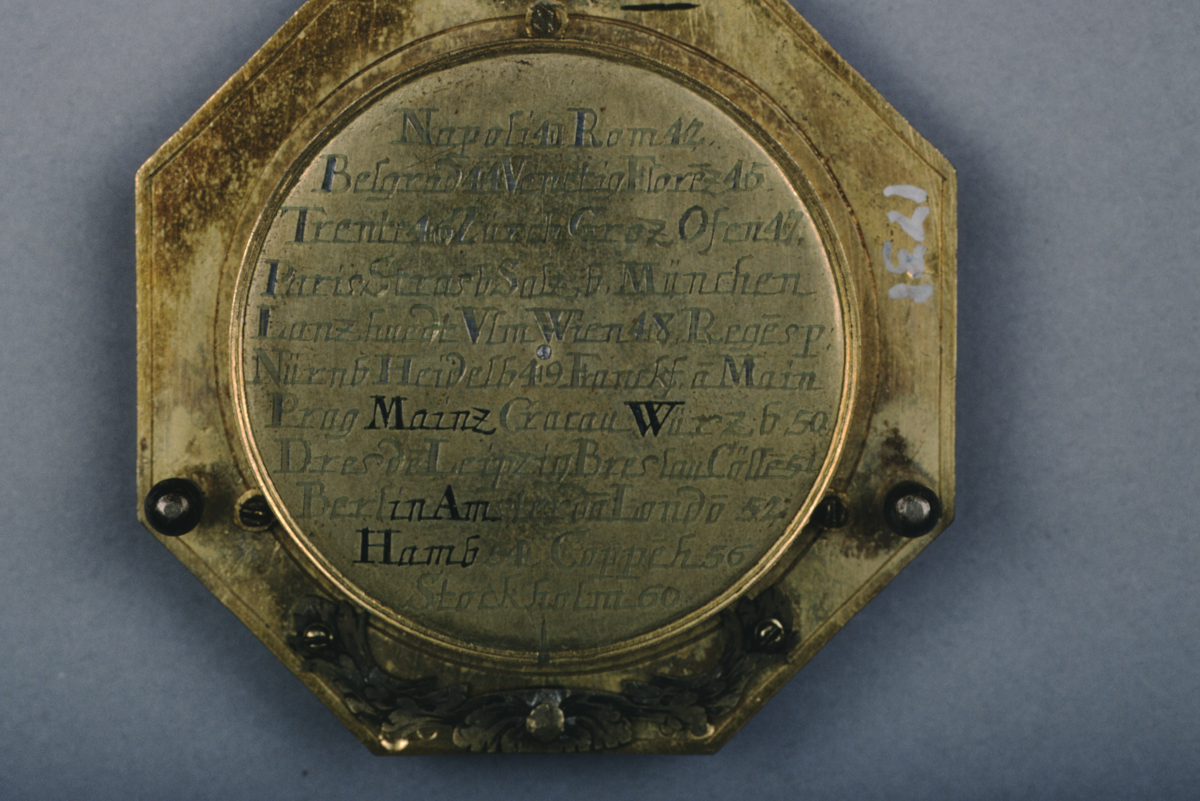 Napoli 41 Rom 42.
Belgrad 44 Venetig Florēz 45
Trent 46 Zurich Groz Ofen 47.
Paris Strasb Salz.b. München
Lanzhuedt Ulm Wien 48. Regēsp
Nürnb Heidelb 49 Franckf. ā Main
Prag Mainz Cracau Würz.b. 50
Dresdē Leipzig Breslau Cöllē 51
Berlin Amsterdā Londō 52.
Hamb 54. Coppēh. 56
Stockholm 60.